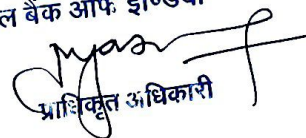 ल बैंक ऑफ इण्डिया
प्राधिकृत अधिकारी